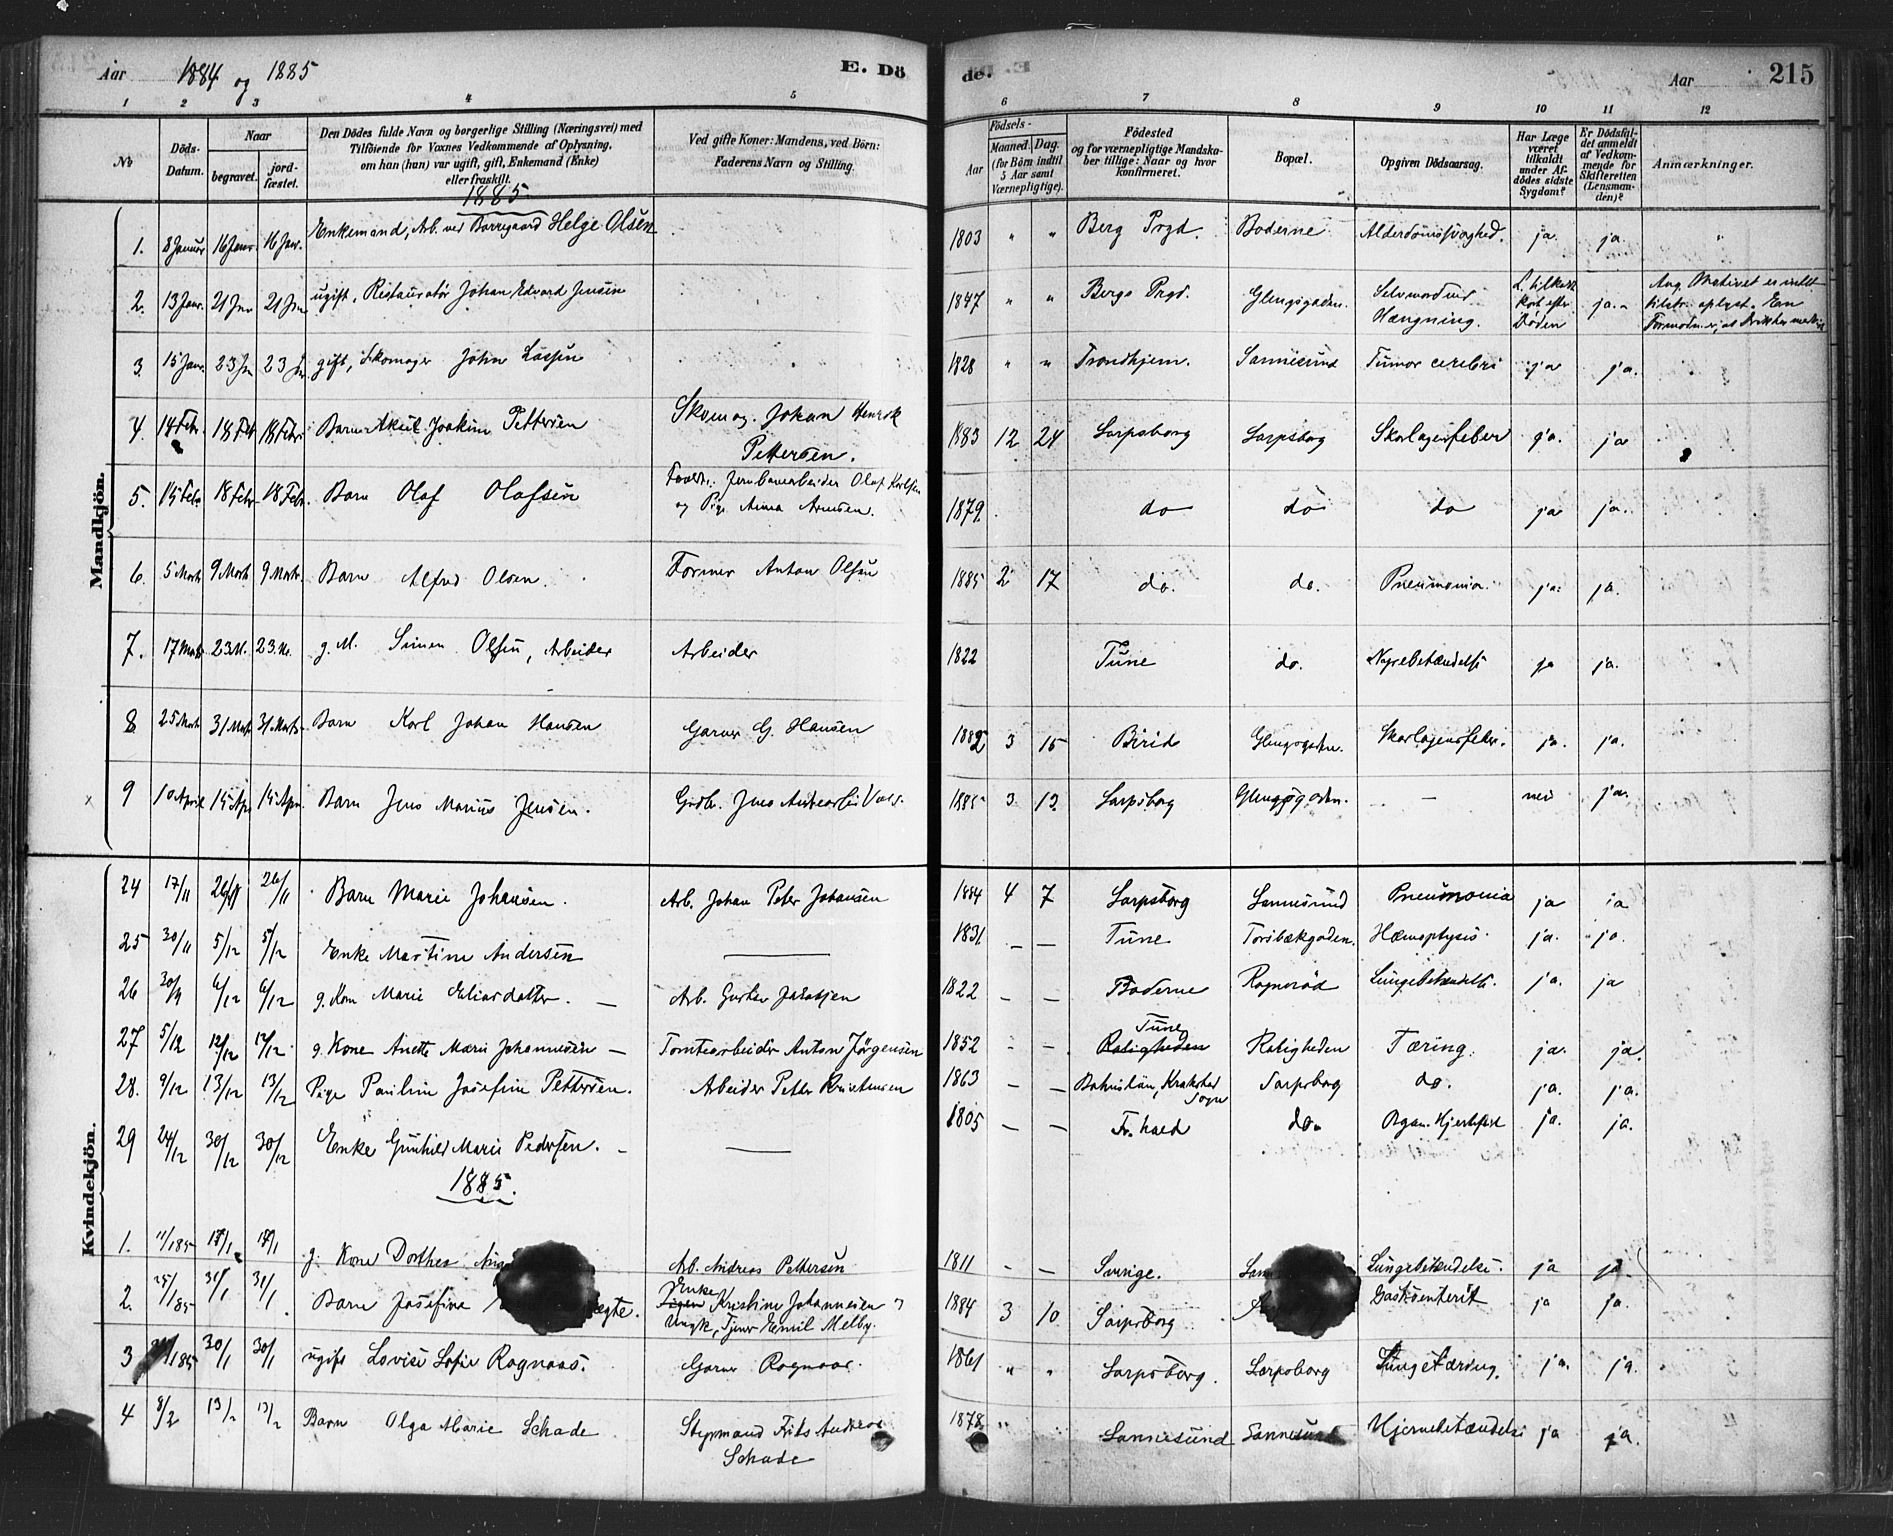 Aar 1884 og 1885 E. Dö de. Aar 215
1 2 3 4 5 6 7 8 9 10 11 12
No Döds-Datum. Naar begravet. jordfæstet. Den Dödes fulde Navn og borgerlige Stilling (Næringsvei) med Tilföiende for Voxnes Vedkommende af Oplysning, om han (hun) var ugift, gift, Enkemand (Enke) eller fraskilt. Ved gifte Koner: Mandens, ved Börn: Faderens Navn og Stilling. Födsels- Aar Maaned. Dag. (for Börn indtil 5 Aar samt Værnepligtige). Födested og for værnepligtige Mandskaber tillige: Naar og hvor konfirmeret. Bopæl. Opgiven Dödsaarsag. Har Læge været tilkaldt under Afdödes sidste Sygdom? Er Dödsfaldet anmeldt af Vedkommende for Skifteretten (Lensmanden)? Anmærkninger.
1885
Mandkjön.
1. 8 Januar 16 Janr. 16 Jan. Enkemand, Arb. ved Borregaard Helge Olsen 1803 " " Berg Prgd. Boderne Alderdomssvaghed. ja. ja. "
2. 13 Janr. 21 Jan 21 Jan ugift, Restauratør Johan Edvard Jensen 1847 " " Bergs Prgd. Glengsgaden. Selvmord ved Hængning. L. tilkaldt kort efter Døden ja. Ang Motivet er intet
3. 15 Janr. 23 Jan 23 Jan gift, Skomager John Lassen 1828 " " Trondhjem. Sannesund Tumor cerebri ja ja.
4. 14 Febr. 18 Feb 18 Febr. Barn Aksel Joakim Pettersen Skomag. Johan Henrik Pettersen. 1883 12 24 Sarpsborg Sarpsborg Skarlagensfeber ja. ja
5. 15 Feb. 18 Febr. 18 Feb. Barn Olaf Olafsen Forældr.: Jernbanearbeider Olaf Karlsen og Pige Anna Arnesen. 1879. do do do ja ja.
6. 5 Marts 9 Marts 9 Marts. Barn Alfred Olsen. Former Anton Olsen 1885 2 17 do. do. Pneumonia. ja. ja.
7. 17 Marts 23 M. 23. M. g. M. Simen Olsen, Arbeider Arbeider 1822 Tune do. Nyrebetændelse ja ja.
8. 25 Marts 31 Marts 31. Marts Barn Karl Johan Hansen Garver G. Hansen 1882 3 15 Birid Glengsgaden. Skarlagensfeber. ja. ja.
9 10 April 15 Apr. 15 Apr. Barn Jens Marius Jensen. Jens Andreas 1885 3 12 Sarpsborg Glengsgaden. — nei ja.
Kvindekjön.
24 17/11 26/11 26/11 Barn Marie Johansen. Arb. Johan Peter Johansen 1884 4 7 Sarpsborg Sannesund Pneumonia ja ja
25 30/11 5/12 5/12 Enke Martine Andersen — 1831 — — Tune Torsbækgaden. Hæmoptysis. ja. ja.
26 6/12 6/12 g. Kone Marie Eliasdatter. — Arb. Jakobsen 1822 — — Boderne Lungebetændelse. ja. ja
27 5/12 12/12 12/12 g. Kone Anette Marie Johannesen — Tomtearbeider Anton Jørgensen 1852 — — Tune Roligheden Roligheden Tæring. ja. ja.
28. 9/12 13/12 13/12 Pige Pauline Josefine Pettersen. Arbeider Petter Kristensen 1863 — — Bohuslän, Krokstad Sogn Sarpsborg do. ja. ja.
29 24/12 30/12 30/12 Enke Gunhild Marie Pedersen. — — 1805 — — Fr.hald do. Organ. Hjertefeil ja. ja.
1885.
1. 11/1 85 17/1 17/1 g. Kone Dorthea Arb. Andreas Pettersen 1811 — — Sverige. Lungebetændelse. ja ja.
2. 25/1 85 31/1 31/1 Barn Josefine ægte. Enke Pigen Kristine Johannesen Ungk, Tjener Emil Melby. 1884 3 10 Sarpsborg Gastroenterit ja ja.
3 /1 85 30/1 30/1 ugift Lovise Sofie Ragnaas. Garver Ragnaas. 1861 " " Sarpsborg. Sarpsborg Lungetæring. ja. ja.
4 8/2 13/2 13/2 Barn Olga Marie Schade Styrmand Frits Andreas Schade 1878 " Sannesund Sannesund Hjernebetændelse ja ja.